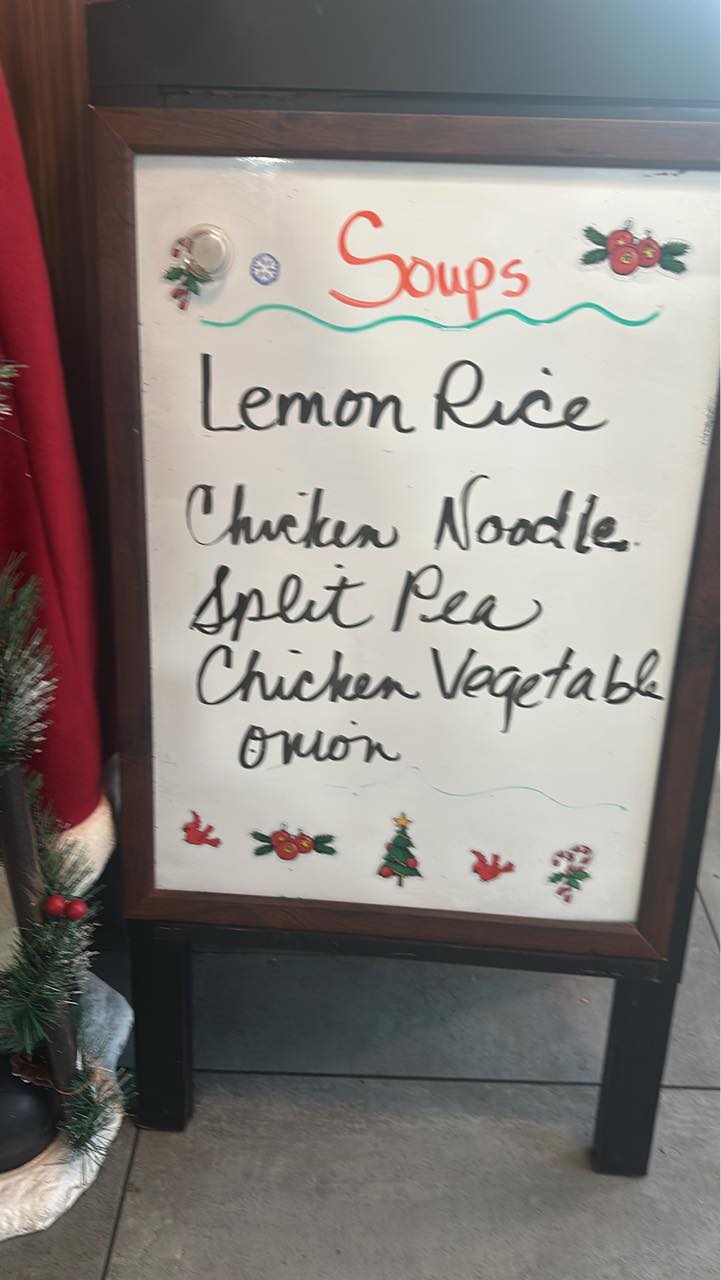 Soups
Lemon Rice
Chicken Noodle
Split Pea
Chicken Vegetable
onion